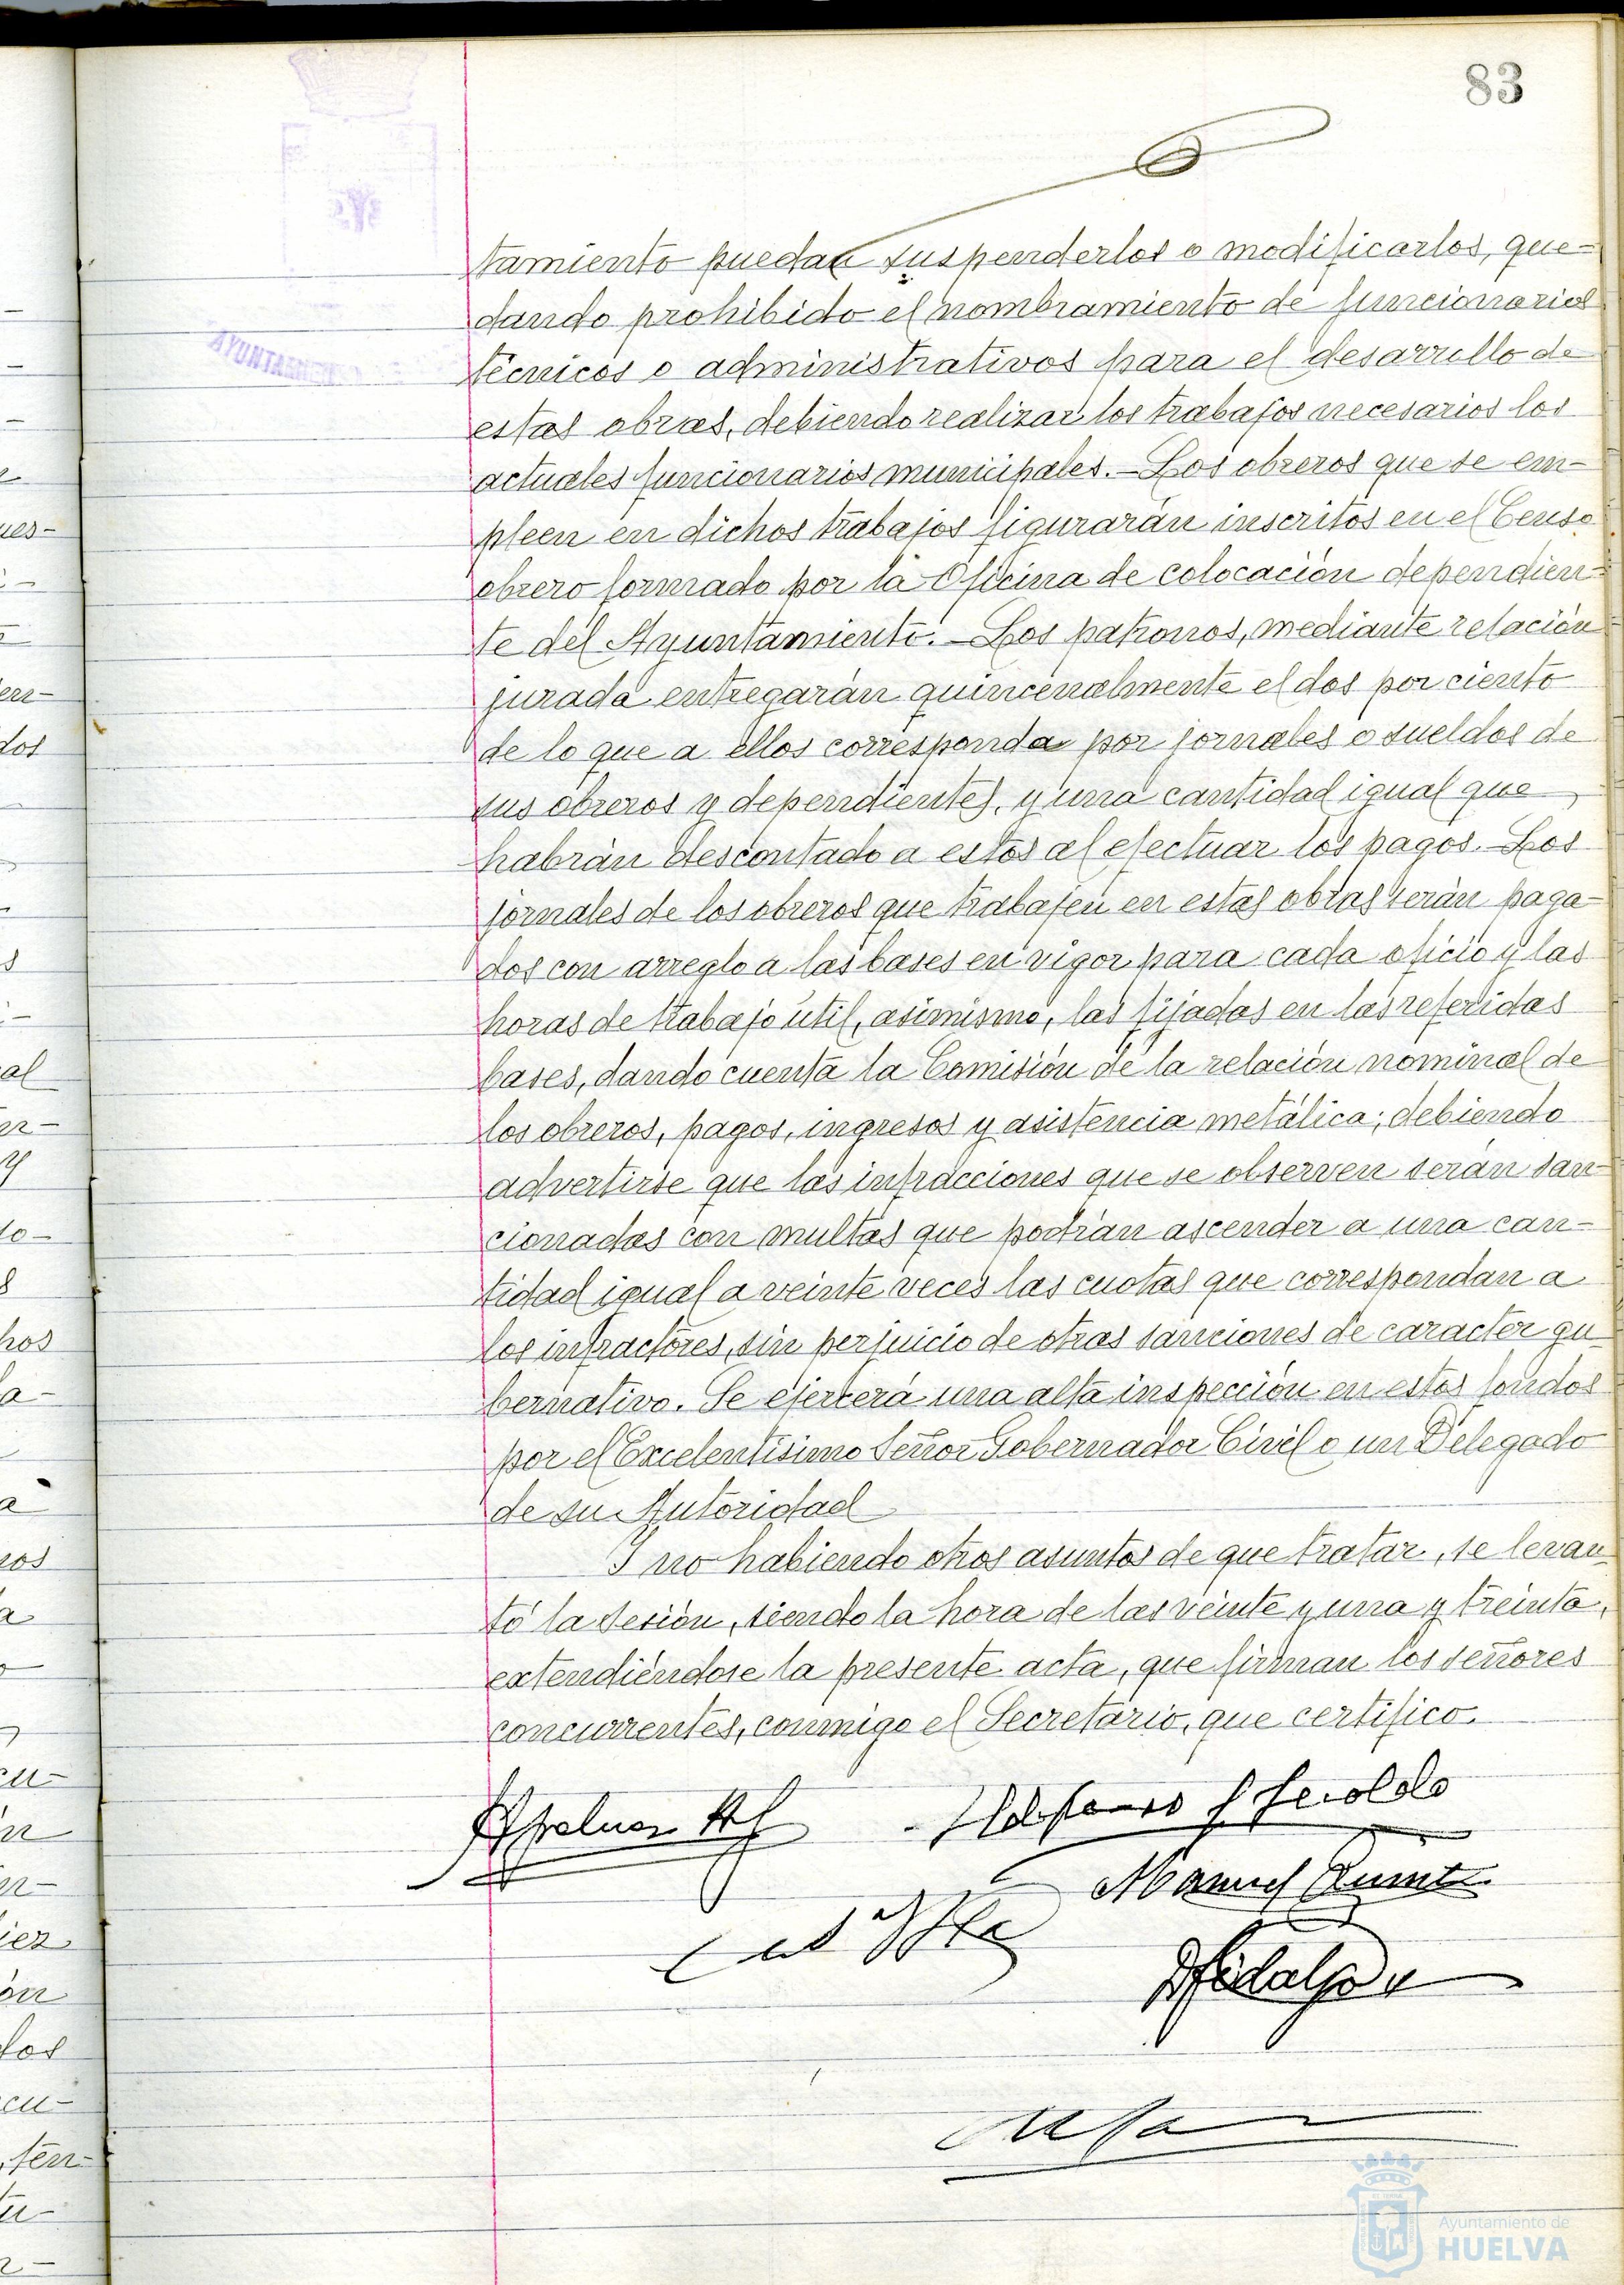 83
tamiento puedan suspenderlos o modificarlos, que-
dando prohibido el nombramiento de funcionarios
técnicos o administrativos para el desarrollo de
estas obras, debiendo realizar los trabajos necesarios los
actuales funcionarios municipales.- Los obreros que se em-
pleen en dichos trabajos figurarán inscritos en el Censo
obrero formado por la Oficina de colocación dependien-
te del Ayuntamiento.- Los patronos, mediante relación
jurada entregarán quincenalmente el dos por ciento
de lo que a ellos corresponda por jornales o sueldos de
sus obreros y dependientes, y una cantidad igual que
habrán descontado a estos al efectuar los pagos.- Los
jornales de los obreros que trabajen en estas obras serán paga-
dos con arreglo a las bases en vigor para cada oficio y las
horas de trabajo útil, asimismo, las fijadas en las referidas
bases, dando cuenta la Comisión de la relación nominal de
los obreros, pagos, ingresos y asistencia metálica; debiendo
advertirse que las infracciones que se observen serán san-
cionadas con multas que podrán ascender a una can-
tidad igual a veinte veces las cuotas que correspondan a
los infractores, sin perjuicio de otras sanciones de caracter gu-
bernativo. Se ejercerá una alta inspección en estos fondos
por el Excelentísimo Señor Gobernador Civil o un Delegado
de su Autoridad
Y no habiendo otros asuntos de que tratar, se levan-
tó la sesión, siendo la hora de las veinte y una y treinta,
extendiéndose la presente acta, que firman los señores
concurrentes, conmigo el Secretario, que certifico.
Manuel
Hidalgo
AYUNTAMIENTO
Ayuntamiento de
HUELVA